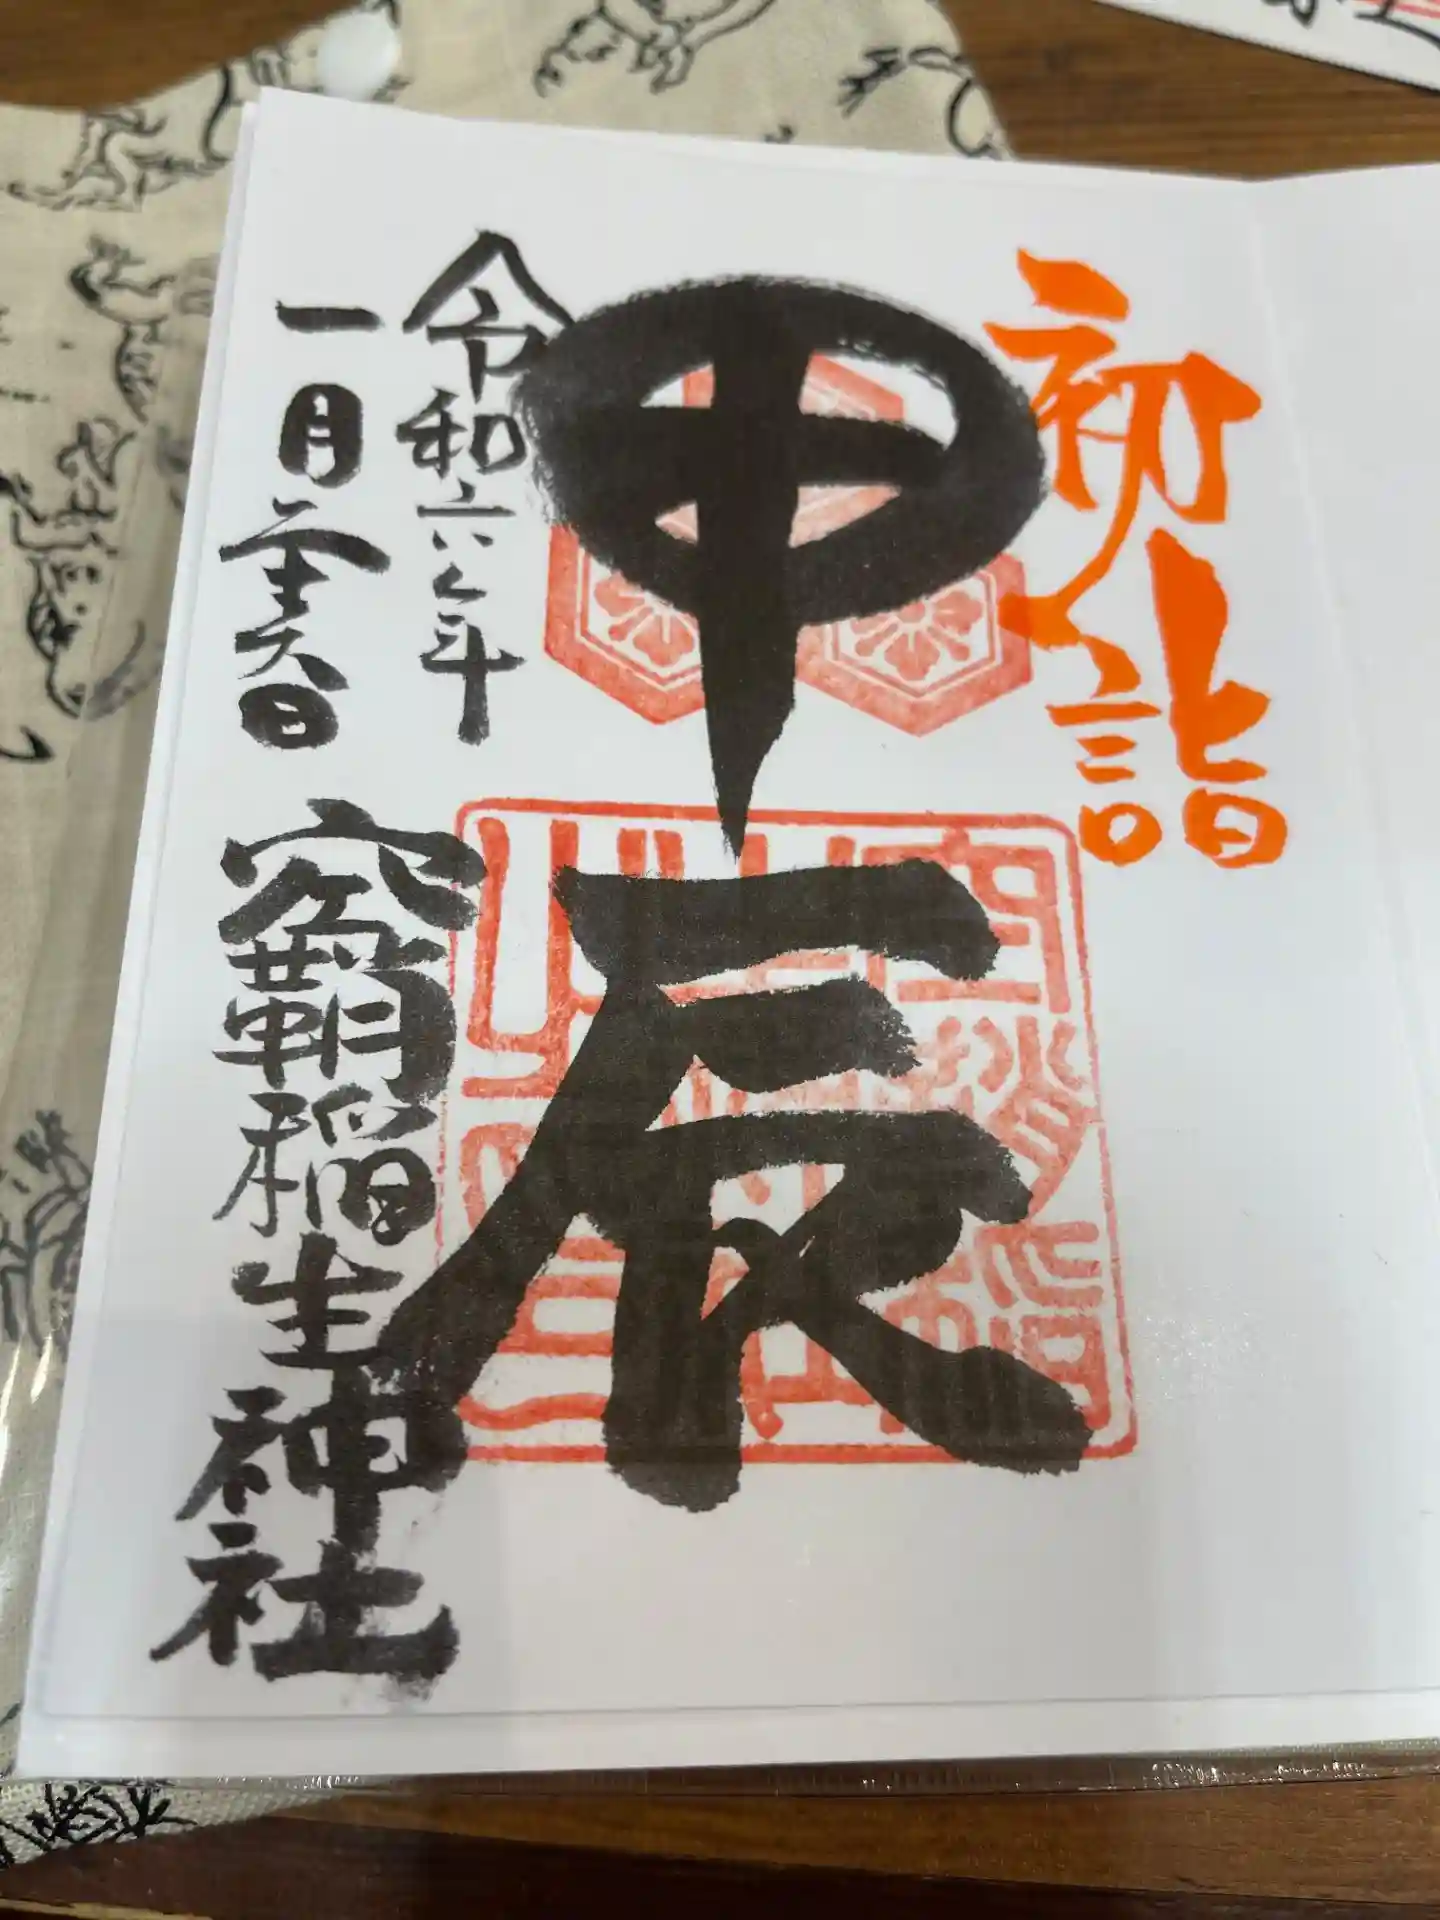 初詣
甲辰
令和六年
一月二十六日
空鞘稲生神社